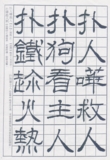 扑人嘩救人
扑狗看主人
扑鐵趁火熱